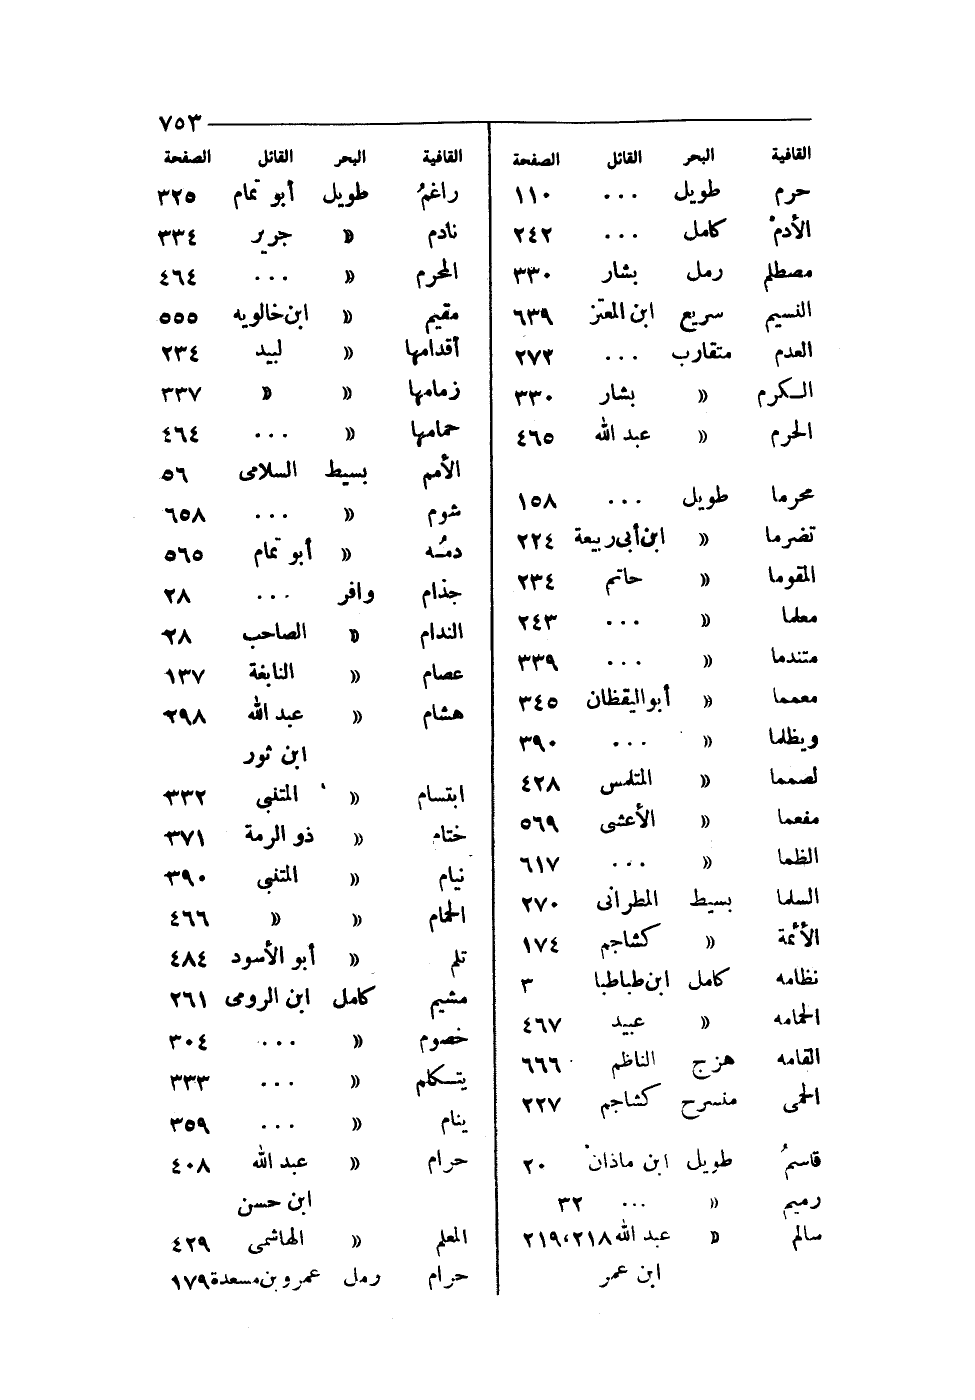 ٧٥٣
القافية البحر القائل الصفحة
حرم طويل ... ١١٠
الأدمْ كامل ... ٢٤٢
مصطلم رمل بشار ٣٣٠
النسيم سريع ابن المعتز ٦٣٩
العدم متقارب ... ٢٧٢
الكرم » بشار ٣٣٠
الحرم » عبد الله ٤٦٥
محرما طويل ... ١٥٨
تضرما » ابن أبى ربيعة ٢٢٤
المقوما » حاتم ٢٣٤
معلما » ... ٢٤٣
متندما » ... ٣٣٩
معمما » أبو اليقظان ٣٤٥
ويظلما » ... ٣٩٠
لصمما » المتلمس ٤٢٨
مفعما » الأعشى ٥٦٩
الظما » ... ٦١٧
السلما بسيط المطرانى ٢٧٠
الأئمة » كشاجم ١٧٤
نظامه كامل ابن طباطبا ٣
الحمامه » عبيد ٤٦٧
القامه هزج الناظم ٦٦٦
الحمى منسرح كشاجم ٢٢٧
قاسمُ طويل ابن ماذان ٢٠
رميم » ... ٣٢
سالم » عبد الله ٢١٨،٢١٩
ابن عمر
القافية البحر القائل الصفحة
راغمُ طويل أبو تمام ٣٢٥
نادم » جرير ٣٣٤
المحرم » ... ٤٦٤
مقيم » ابن خالويه ٥٥٥
أقدامها » لبيد ٢٣٤
زمامها » » ٣٣٧
حمامها » ... ٤٦٤
الأمم بسيط السلامى ٥٦
شوم » ... ٦٥٨
دمُه » أبو تمام ٥٦٥
جذام وافر ... ٢٨
الندام » الصاحب ٢٨
عصام » النابغة ١٣٧
هشام » عبد الله ٢٩٨
ابن ثور
ابتسام » المتنبى ٣٣٢
ختام » ذو الرمة ٣٧١
نيام » المتنبى ٣٩٠
الحمام » » ٤٦٦
تلم » أبو الأسود ٤٨٤
مشيم كامل ابن الرومى ٢٦١
خصوم » ... ٣٠٤
يتكلم » ... ٣٣٣
ينام » ... ٣٥٩
حرام » عبد الله ٤٠٨
ابن حسن
المعلم » الهاشمى ٤٢٩
حرام رمل عمرو بن مسعدة ١٧٩